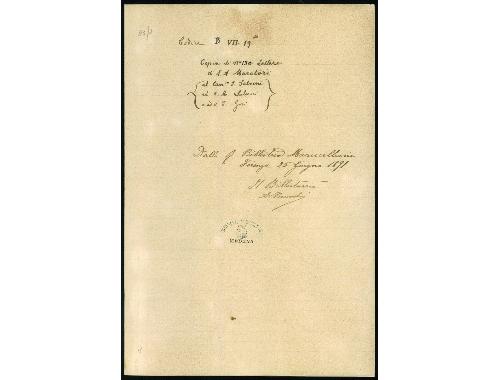 Codice B VII 19
Copia di n° 130 Lettere
di L A Muratori
al Can.co S. Salvini
ad A. M. Salvini
e ad A. F. Gori
Dalla Biblioteca Marucelliana
Firenze 25 Giugno 1891
Il Bibliotecario
MODENA